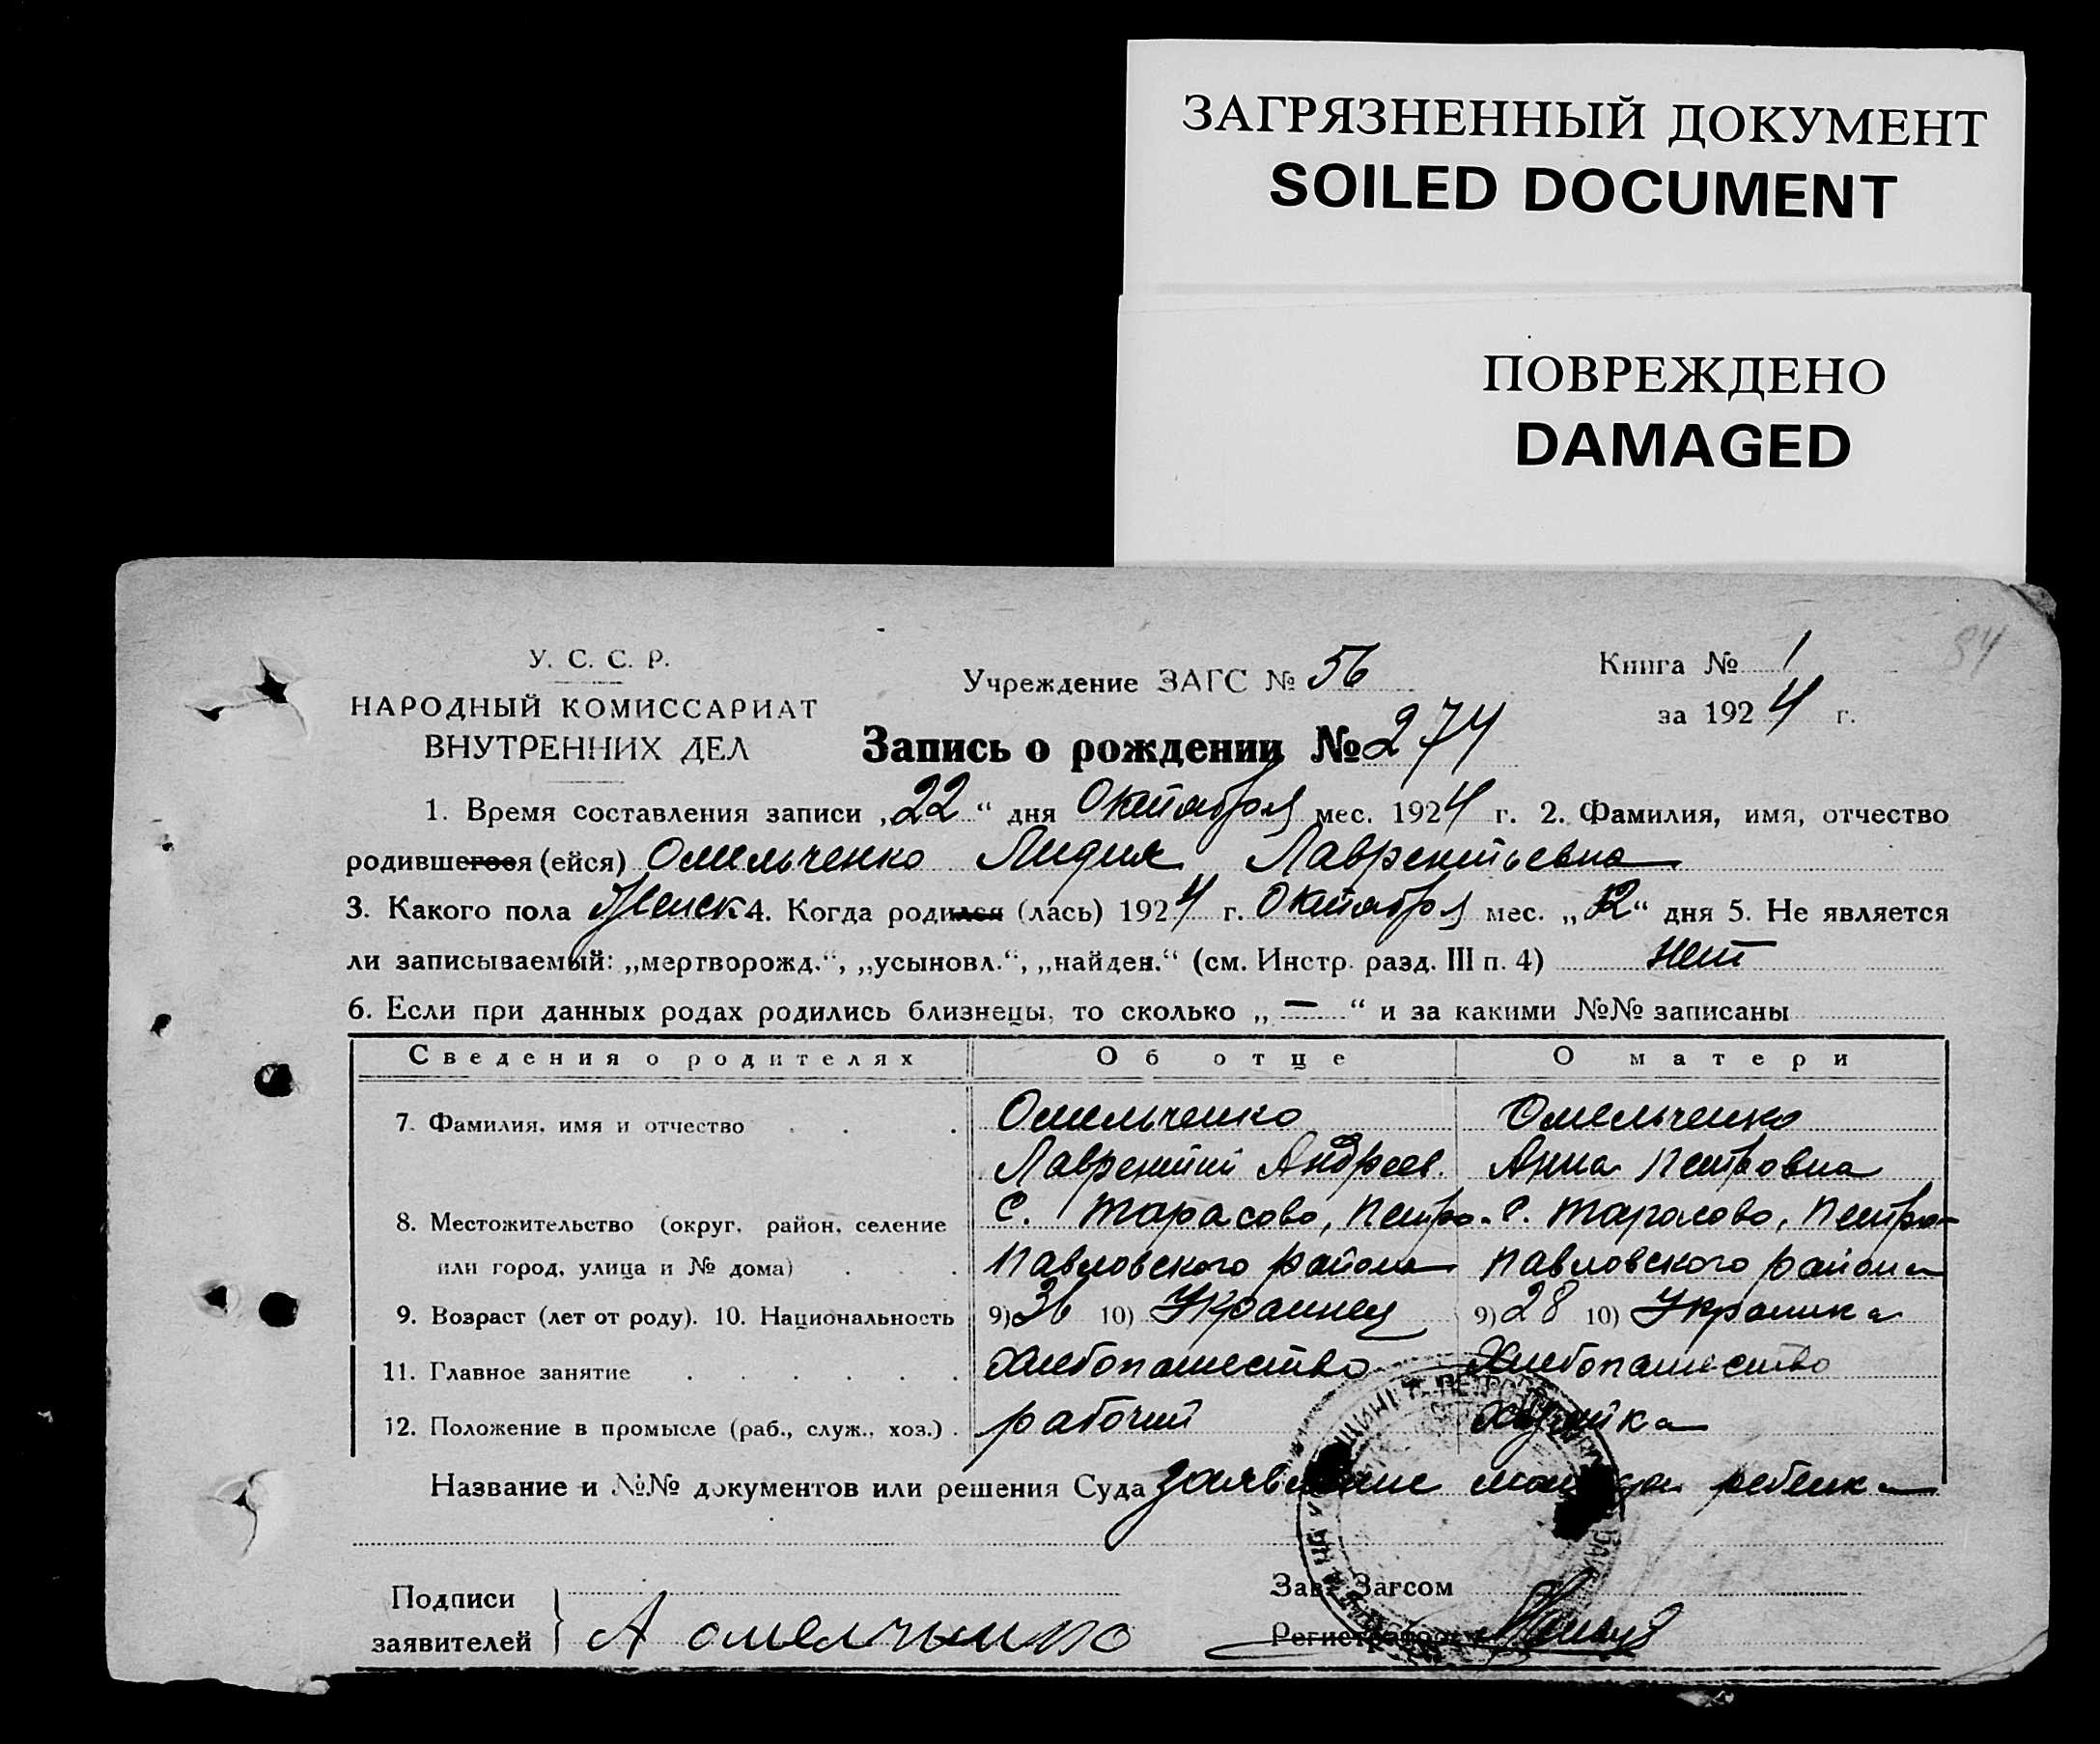 ЗАГРЯЗНЕННЫЙ ДОКУМЕНТ
SOILED DOCUMENT
ПОВРЕЖДЕНО
DAMAGED
У. С. С. Р.
НАРОДНЫЙ КОМИССАРИАТ
ВНУТРЕННИХ ДЕЛ
Учреждение ЗАГС № 56
Книга № 1
за 1924 г.
Запись о рождении № 274
1. Время составления записи „22“ дня Октября мес. 1924 г. 2. Фамилия, имя, отчество
родившегося (ейся) Омельченко Лидия Лаврентьевна
3. Какого пола Женск 4. Когда родился (лась) 1924 г. Октября мес. „12“ дня 5. Не является
ли записываемый: „мертворожд.“, „усыновл.“, „найден.“ (см. Инстр. разд. III п. 4) нет
6. Если при данных родах родились близнецы, то сколько „—“ и за какими №№ записаны
Сведения о родителях Об отце О матери
7. Фамилия, имя и отчество Омельченко Омельченко
Лаврентий Андреев. Анна Петровна
8. Местожительство (округ, район, селение с. Тарасово, Петро- с. Тарасово, Петро-
или город, улица и № дома) павловского района павловского района
9. Возраст (лет от роду). 10. Национальность 9) 36 10) Украинец 9) 28 10) Украинка
11. Главное занятие Хлебопашество Хлебопашество
12. Положение в промысле (раб., служ., хоз.) рабочий хозяйка
Название и №№ документов или решения Суда заявление ребенка
Подписи
заявителей А омелченко
Зав. Загсом
Регистратор